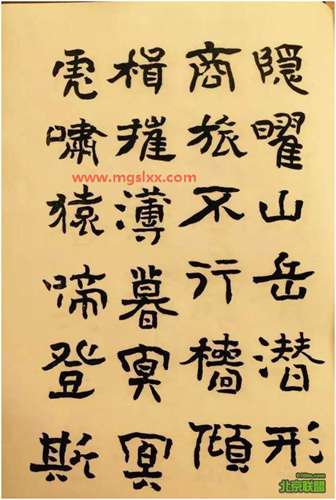 隐曜山岳潜形
商旅不行檣傾
楫摧薄暮冥冥
虎嘯猿啼登斯
www.mgslxx.com
北京联盟